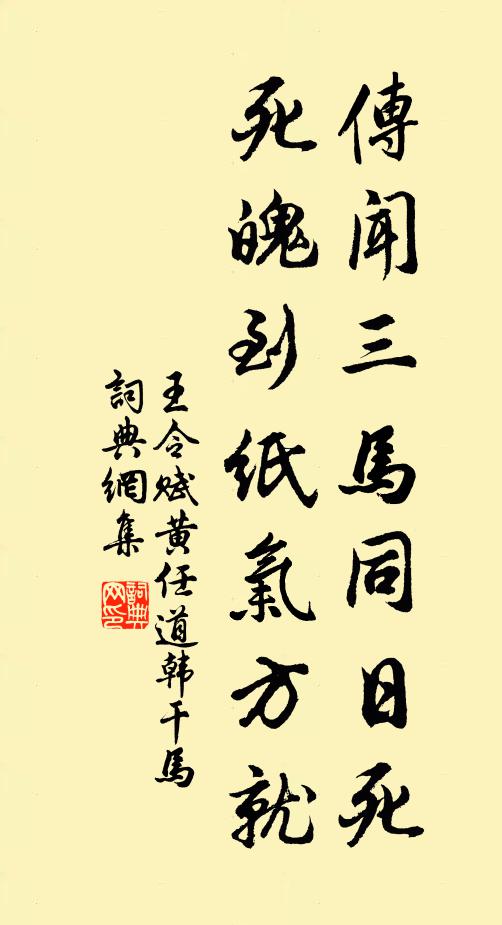 傳聞三馬同日死
死魄到紙氣方就
王令賦黃任道韩干馬
詞典網集
詞典網印